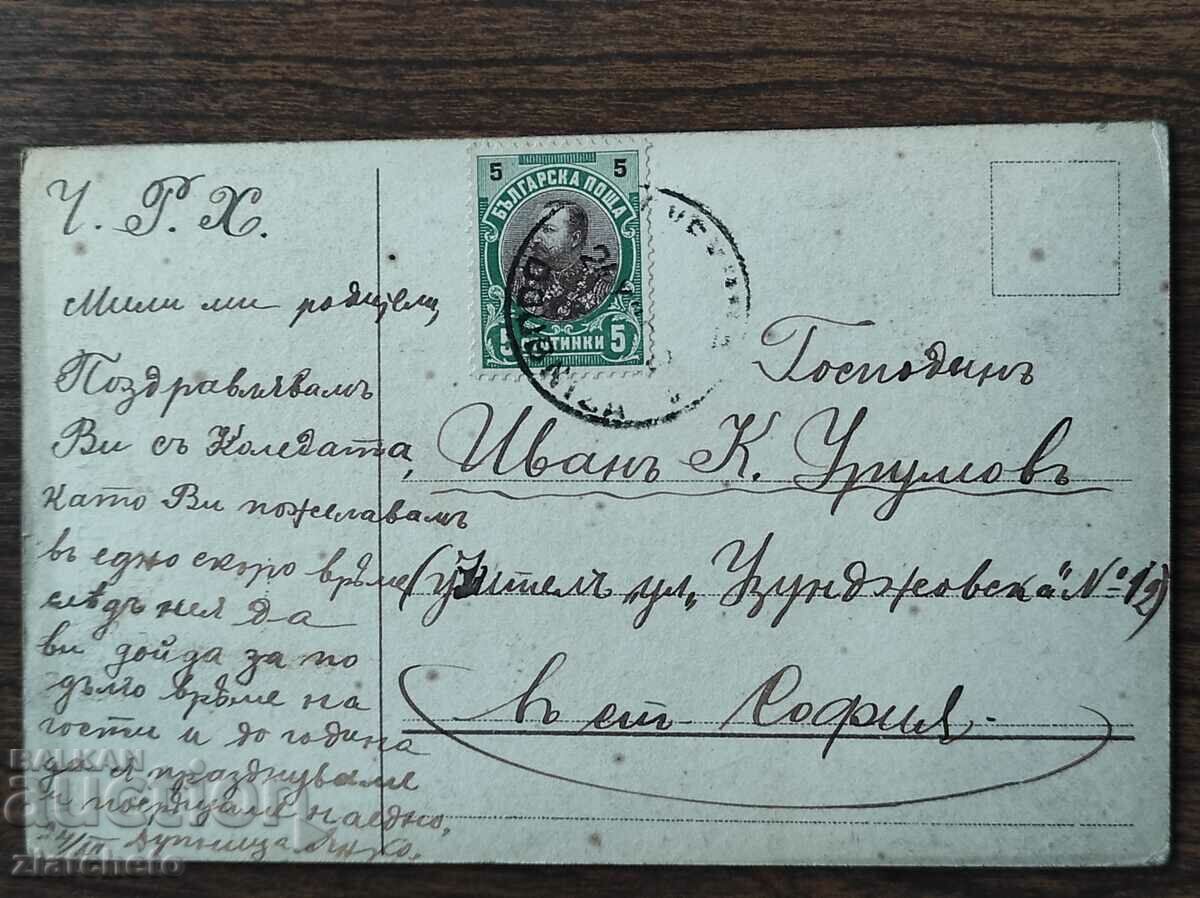 Ч. Р. Х.
Мили ми родители
Поздравлявамъ
Ви съ Коледата,
като Ви пожелавамъ
въ едно скоро врѣме
слѣдъ нея да
ви дойда за по
дълго врѣме на
гости и до година
да я празднуваме
и посрѣщаме наедно.
24/XII Дупница Янко.
5 5
БЪЛГАРСКА ПОЩА
5 СТОТИНКИ 5
DOUBNIZA
Господинъ
Иванъ К. Урумовъ
(учитель „ул„ Узунджовска“ № 12)
въ ст. София.
BALKAN
auction
zlatcheto